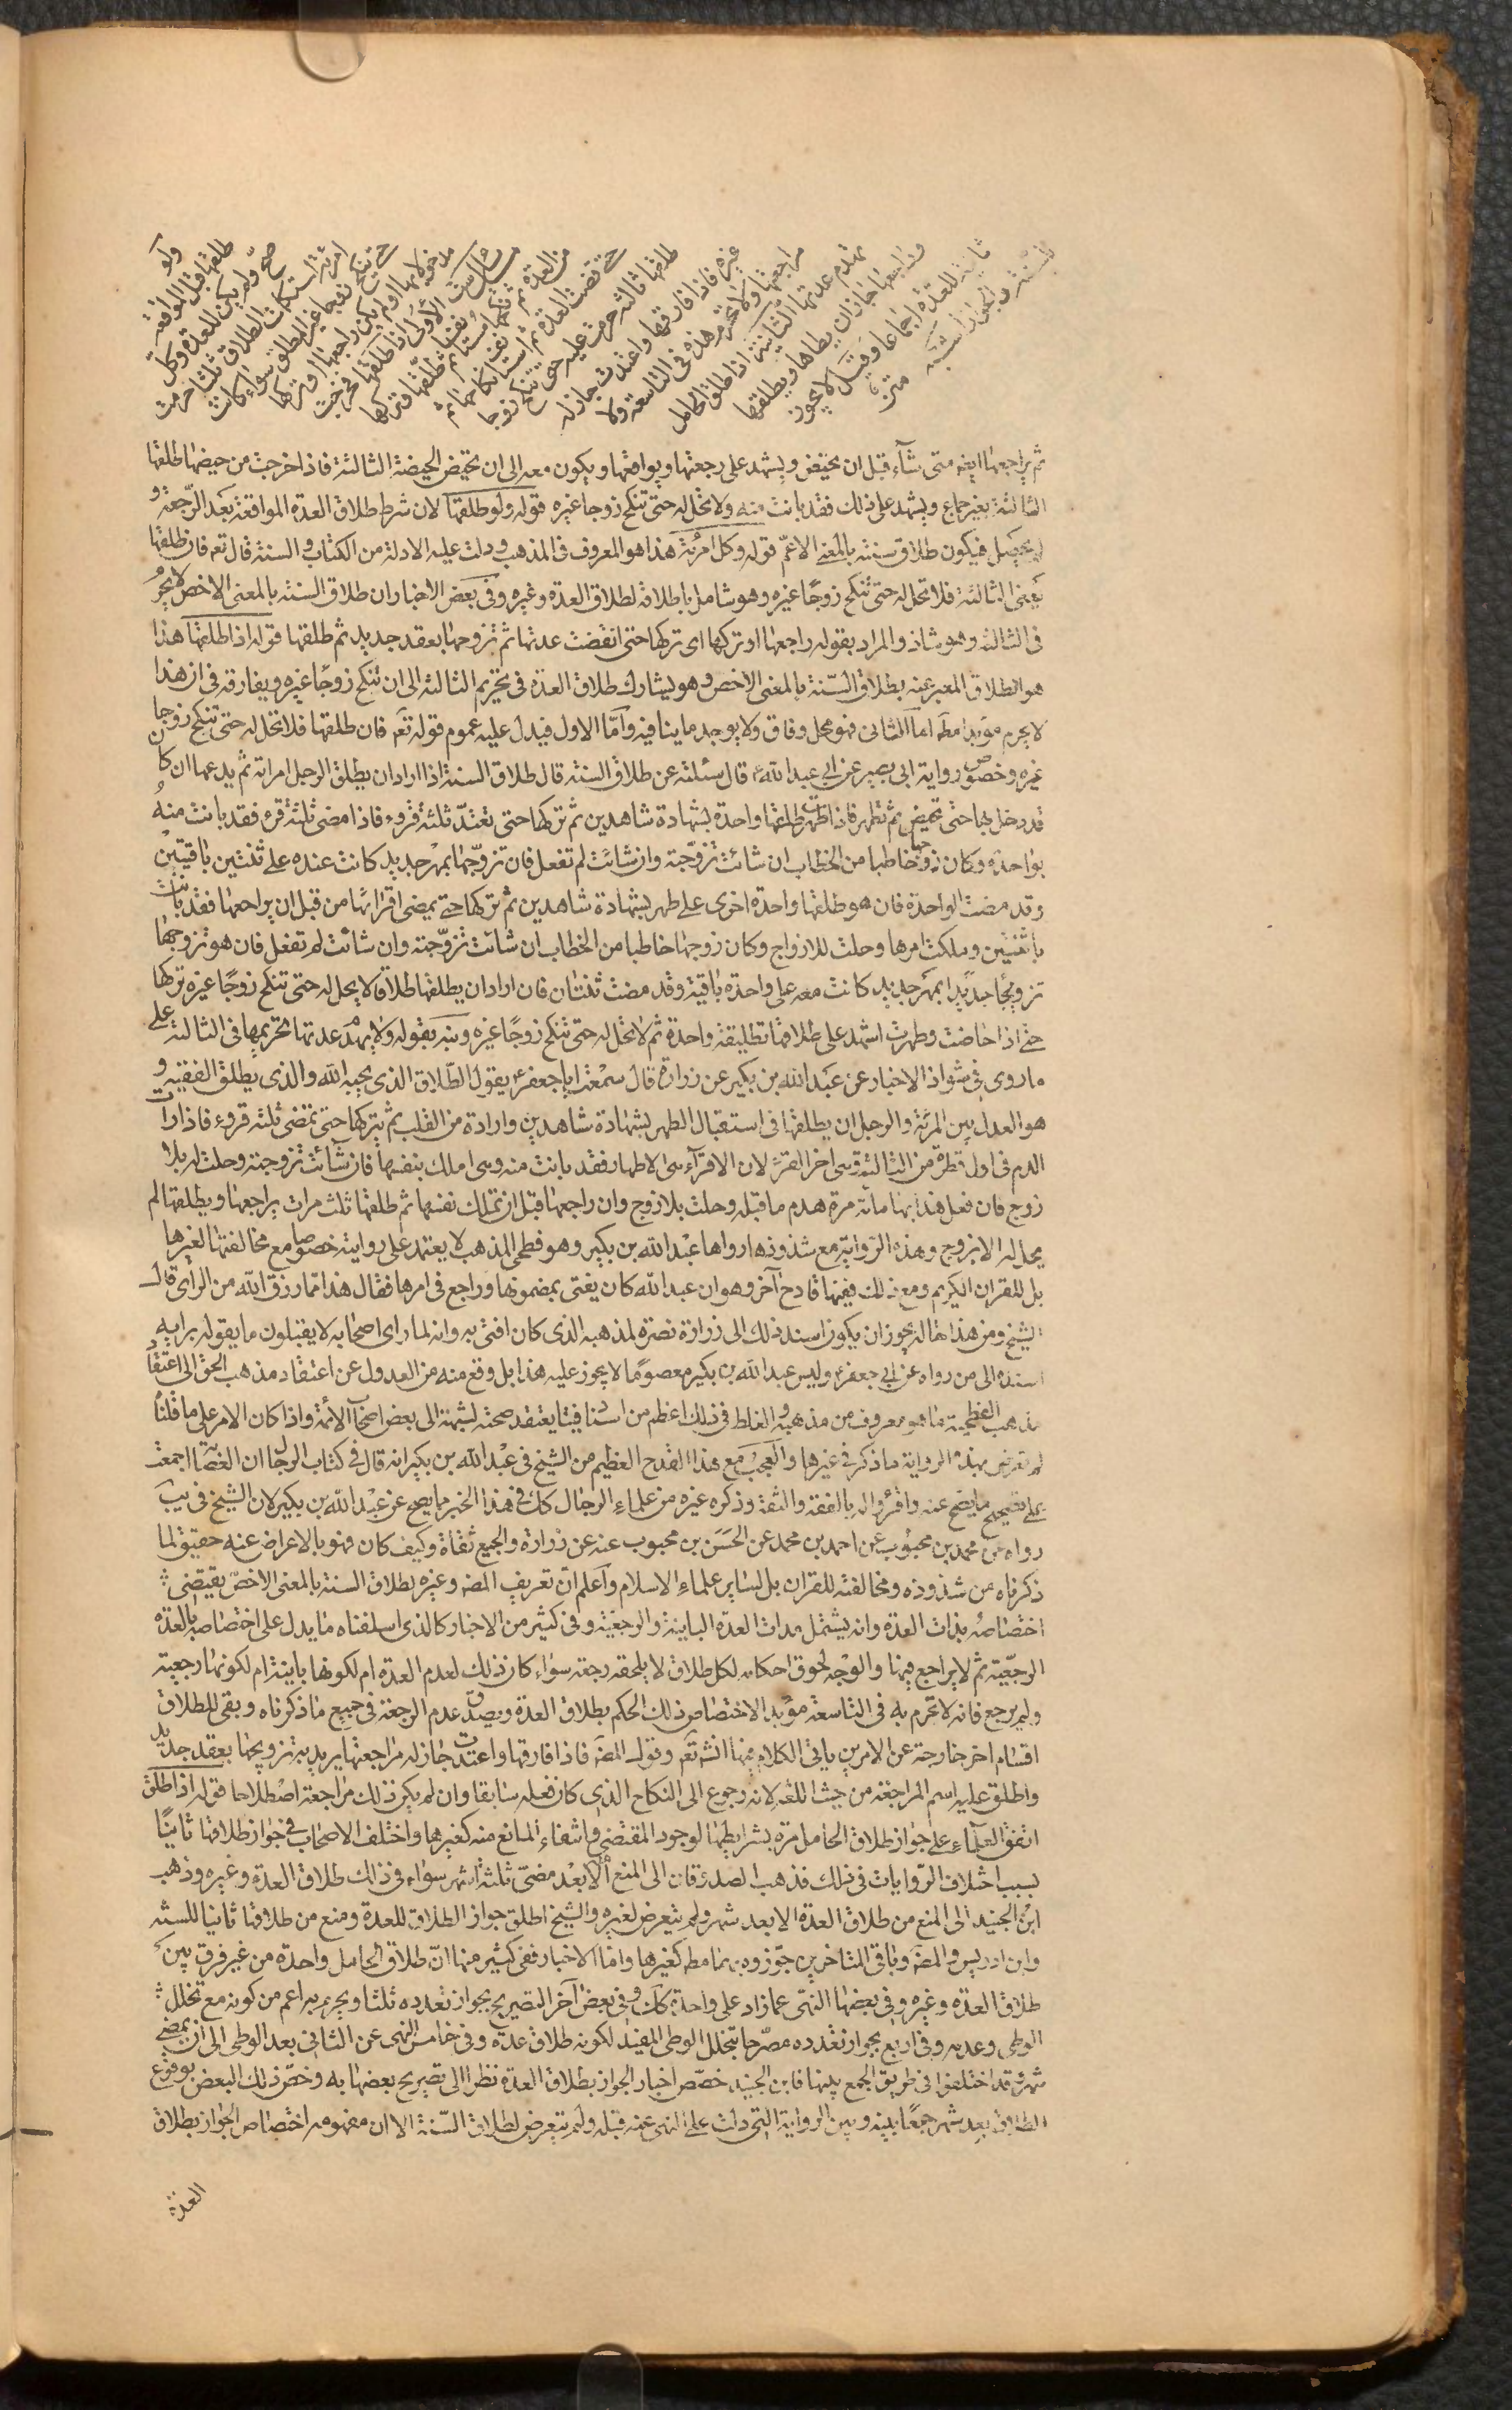 ولو
طلقها قبل المواقعة
صح ولم يكن للعدة وكل
امرئة استكملت الطلاق ثلثا حرمت
حتى تنكح زوجا غير المطلق سواء كانت
مدخولا بها او لم يكن راجعها او تركها
مسائل ست الأولى اذا طلقها فخرجت
من العدة ثم نكحها مستانفا ثم طلقها وتركها
حتى قضت العدة ثم استانف نكاحها ثم
طلقها ثالثة حرمت عليه حتى تنكح زوجا
غيره فاذا فارقها واعتدت جاز له
مراجعتها ولا تحرم هذه في التاسعة ولا
تهدم عدتها الثانية اذا طلق الحامل
وراجعها جاز ان يطأها ويطلقها
ثانية للعدة اجماعا وقيل لا يجوز
للسنة والجواز اشبه
متن
ثم يراجعها ايضا متى شاء قبل ان تحيض ويشهد على رجعتها ويواقعها ويكون معه الى ان تحيض الحيضة الثالثة فاذا خرجت من حيضها طلقها
الثالثة بغير جماع ويشهد على ذلك فقد بانت منه ولا تحل له حتى تنكح زوجا غيره قوله ولو طلقها لان شرط طلاق العدة المواقعة بعد الرجعة و
لم يحصل فيكون طلاق سنة بالمعنى الاعم قوله وكل امرئة هذا هو المعروف في المذهب ودلت عليه الادلة من الكتاب والسنة قال تعم فان طلقها
يعنى الثالثة فلا تحل له حتى تنكح زوجًا غيره وهو شامل باطلاقه لطلاق العدة وغيره وفي بعض الاخبار ان طلاق السنة بالمعنى الاخص لا يحرم
في الثالثة وهو شاذ والمراد بقوله راجعها او تركها اى تركها حتى انقضت عدتها ثم تزوجها بعقد جديد ثم طلقها قوله اذا طلقها هذا
هو الطلاق المعبر عنه بطلاق السنة بالمعنى الاخص وهو يشارك طلاق العدة في تحريم الثالثة الى ان تنكح زوجًا غيره ويفارقه في ان هذا
لا يحرم مؤبدا مطلقا اما الثانى فهو محل وفاق ولا يوجد ما ينافيه وأما الاول فيدل عليه عموم قوله تعم فان طلقها فلا تحل له حتى تنكح زوجا
غيره وخصوص رواية ابى بصير عن ابى عبد الله ع قال سئلته عن طلاق السنة قال طلاق السنة اذا اراد ان يطلق الرجل امراته ثم يدعها ان كان
قد دخل بها حتى تحيض ثم تطهر فاذا طهرت طلقها واحدة بشهادة شاهدين ثم تركها حتى تعتدّ ثلثة قروء فاذا مضى ثلثة قروء فقد بانت منهُ
بواحدة وكان زوجها خاطبا من الخطاب ان شائت تزوّجته وان شائت لم تفعل فان تزوّجها بمهر جديد كانت عنده على ثنتين باقيتين
وقد مضت الواحدة فان هو طلقها واحدة اخرى على طهر بشهادة شاهدين ثم تركها حتى يمضى اقراؤها من قبل ان يراجعها فقد بانت
باثنتين وملكت امرها وحلت للازواج وكان زوجها خاطبا من الخطاب ان شائت تزوّجته وان شائت لم تفعل فان هو تزوجها
تزويجًا جديدًا بمهر جديد كانت معه على واحدة باقية وقد مضت ثنتان فان اراد ان يطلقها طلاقا لا يحل له حتى تنكح زوجًا غيره تركها
حتى اذا حاضت وطهرت اشهد على طلاقها تطليقة واحدة ثم لا تحل له حتى تنكح زوجًا غيره ونبه بقوله ولا يهدم عدتها تحريمها في الثالثة على
ما روى في شواذ الاخبار عن عبد الله بن بكير عن زرارة قال سمعت ابا جعفر ع يقول الطلاق الذى يحبه الله والذى يطلق الفقيه و
هو العدل بين المرئة والرجل ان يطلقها في استقبال الطهر بشهادة شاهدين وارادة من القلب ثم يتركها حتى تمضى ثلثة قروء فاذا رات
الدم في اول قطرة من الثالثة وهى اخر القرء لان الاقرآء هى الاطهار فقد بانت منه وهى املك بنفسها فان شآئت تزوجته وحلت له بلا
زوج فان فعل هذا بها مائة مرة هدم ما قبله وحلت بلا زوج وان راجعها قبل ان تملك نفسها ثم طلقها ثلث مرات يراجعها ويطلقها لم
يحل له الا بزوج وهذه الرواية مع شذوذها رواها عبد الله بن بكير وهو فطحى المذهب لا يعتمد على روايته خصوصا مع مخالفتها لغيرها
بل للقران الكريم ومع ذلك ففيها قادح آخر وهو ان عبد الله كان يفتى بمضمونها وراجع في امرها فقال هذا مما رزق الله من الراى قال
الشيخ ومن هذا حاله يجوز ان يكون اسند ذلك الى زرارة نصرة لمذهبه الذى كان افتى به وانه لما راى اصحابه لا يقبلون ما يقوله برايه
اسنده الى من رواه عن ابى جعفر ع وليس عبد الله بن بكير معصومًا لا يجوز عليه هذا بل وقع منه من العدول عن اعتقاد مذهب الحق الى اعتقاد
مذهب الفطحية ما هو معروف من مذهبه والغلط في ذلك اعظم من اسناد فتيا يعتقد صحته لشبهة الى بعض اصحاب الأئمة واذا كان الامر على ما قلنا
لم تعرض بهذه الرواية ما ذكر في غيرها والعجب مع هذا القدح العظيم من الشيخ في عبد الله بن بكير انه قال في كتاب الرجال ان العصابة اجمعت
على تصحيح ما يصح عنه واقروا له بالفقه والثقة وذكره غيره من علماء الرجال كك في هذا الخبر مما يصح عن عبد الله بن بكير لان الشيخ في يب
رواه عن محمد بن محبوب عن احمد بن محمد عن الحسن بن محبوب عنه عن زرارة والجميع ثقاة وكيف كان فهو بالاعراض عنه حقيق لما
ذكرناه من شذوذه ومخالفته للقران بل لساير علماء الاسلام وأعلم ان تعريف المصه وغيره بطلاق السنة بالمعنى الاخصّ يقتضى
اختصاصُه بذات العدة وانه يشتمل مدات العدة البائنة والرجعية وفى كثير من الاخبار كالذى اسلفناه ما يدل على اختصاصه بالعدة
الرجعية ثم لا يراجع فيها والوجه لحوق احكامه لكل طلاق لا يلحقه رجعة سواء كان ذلك لعدم العدة ام لكونها باينة ام لكونها رجعية
ولم يرجع فانه لا تحرم به في التاسعة مؤبدا لاختصاص ذلك الحكم بطلاق العدة ويصدق عدم الرجعة في جميع ما ذكرناه وبقى للطلاق
اقسام اخر خارجة عن الامرين ياتى الكلام فيها انشه تعم وقول المصه فاذا فارقها واعتدت جاز له مراجعتها يريد به تزويجها بعقد جديد
واطلق عليه اسم المراجعة من حيث اللغة لانه رجوع الى النكاح الذى كان فعله سابقا وان لم يكن ذلك مراجعة اصطلاحا قوله اذا طلق
اتفق العلماء على جواز طلاق الحامل مرة بشرايطها لوجود المقتضى وانتفاء المانع منه كغيرها واختلف الاصحاب في جواز طلاقها ثانيًا
بسبب اختلاف الروايات في ذلك فذهب الصدوقان الى المنع الا بعد مضىّ ثلثة اشهر سواء في ذلك طلاق العدة وغيره وذهب
ابن الجنيد الى المنع من طلاق العدة الا بعد شهر ولم يتعرض لغيره والشيخ اطلق جواز الطلاق للعدة ومنع من طلاقها ثانيا للسنة
وابن ادريس والمصه وباقى المتاخرين جوّزوه بها مطه كغيرها واما الاخبار ففى كثير منها انّ طلاق الحامل واحدة من غير فرق بين
طلاق العدة وغيره وفى بعضها النهى عما زاد على واحدة كك وفى بعض آخر التصريح بجواز تعدده ثلثا وتحريم به اعم من كونه مع تخلل
الوطى وعدمه وفى اربع بجواز تعدده مصرّحا بتخلل الوطى المفيد لكونه طلاق عدة وفى خامس النهى عن الثانى بعد الوطى الى ان يمضى
شهر وقد اختلفوا في طريق الجمع بينها فابن الجنيد خصّص اخبار الجواز بطلاق العدة نظرا الى تصريح بعضها به وخصّ ذلك البعض بوقوع
الطلاق بعد شهر جمعًا بينه وبين الرواية التى دلت على النهى عنه قبله ولم يتعرض لطلاق السّنة الا ان مفهومه اختصاص الجواز بطلاق
العدة